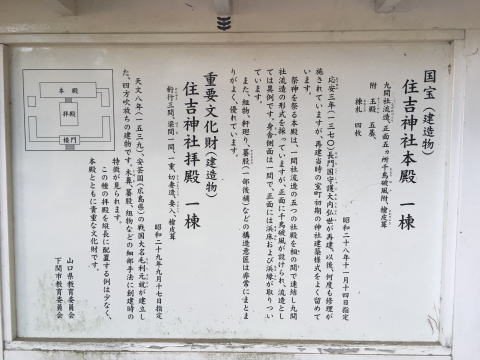 国宝（建造物）
住吉神社本殿 一棟
九間社流造、正面五ヵ所千鳥破風附、檜皮葺
附 玉殿 五基、
棟札 四枚
昭和二十八年十一月十四日指定
応安三年（一三七〇）長門国守護大内弘世が再建、以後、何度も修理が
施されていますが、再建当時の室町初期の神社建築様式をよく留めて
います。
祭神を祭る本殿は、一間社流造の五つの社殿を相の間で連結し九間
社流造の形式を採っていますが、正面に千鳥破風が設けられ、流造とし
ては異例です。身舎側面は一間で、正面には浜床および浜縁が取りつい
ています。
また、組物、軒廻り、蟇股（一部後補）などの構造意匠は非常にまとま
りがよく、優れています。
重要文化財（建造物）
住吉神社拝殿 一棟
桁行三間、梁間一間、一重、切妻造、妻入、檜皮葺
昭和二十九年九月十七日指定
天文八年（一五三九）、安芸国（広島県）の戦国大名毛利元就が建立し
た、四方吹放ちの建物です。木鼻、蟇股、組物などの細部手法に創建時の
特徴が見られます。
この種の拝殿を縦長に配置する例は少なく、
本殿とともに貴重な文化財です。
山口県教育委員会
下関市教育委員会
本殿
拝殿
楼門